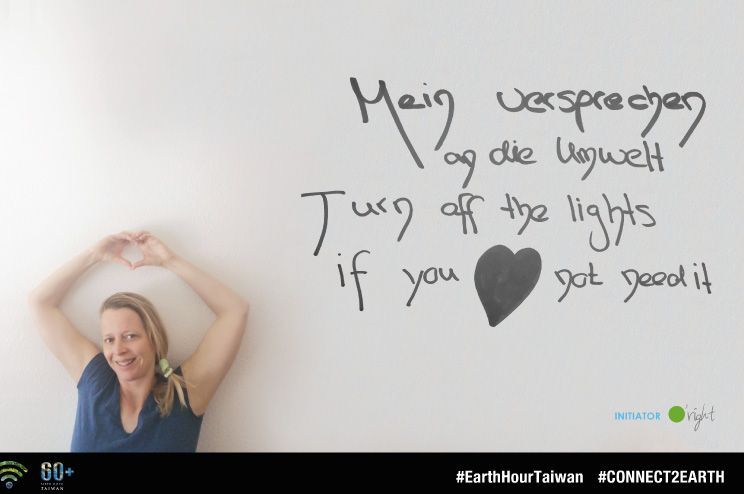 Mein versprechen
an die Umwelt
Turn off the lights
if you not need it
INITIATOR O'right
60+
TAIWAN
#EarthHourTaiwan #CONNECT2EARTH